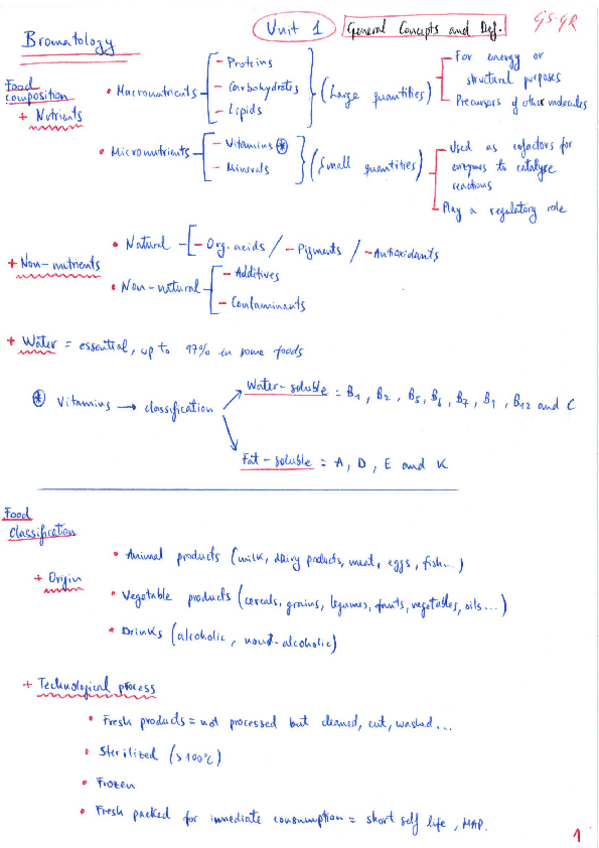 Unit 1 General Concepts and Def. GS-GR
Bromatology
Food composition
+ Nutrients
• Macronutrients
- Proteins
- Carbohydrates
- Lipids
(Large quantities)
- For energy or structural purposes
- Precursors of other molecules
• Micronutrients
- Vitamins *
- Minerals
(Small quantities)
- Used as cofactors for
enzymes to catalyse
reactions
- Play a regulatory role
+ Non-nutrients
• Natural - Org. acids / - Pigments / - Antioxidants
• Non-natural
- Additives
- Contaminants
+ Water = essential, up to 97% in some foods
* Vitamins → classification
Water-soluble = B1, B2, B5, B6, B7, B9, B12 and C
Fat-soluble = A, D, E and K
Food
classification
+ Origin
• Animal products (milk, dairy products, meat, eggs, fish...)
• Vegetable products (cereals, grains, legumes, fruits, vegetables, oils...)
• Drinks (alcoholic, non-alcoholic)
+ Technological process
• Fresh products = not processed but cleaned, cut, washed...
• Sterilized (>100°C)
• Frozen
• Fresh packed for immediate consumption = short self life, MAP.
1